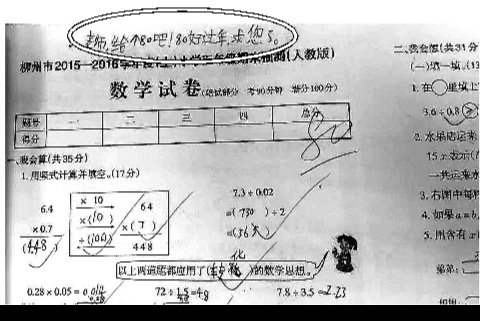 老师,给个80吧!80好过年,求您了。
柳州市2015—2016学年度
(人教版)
数学试卷(笔试部分 考90分钟 满分100分)
题号 一 二 三 四 总分
得分 80
一、我会算(共35分)
1.用竖式计算并填空。(17分)
6.4 × 10 64
×0.7 ×(10) ×(7)
(4.48) ÷(100) 448
7.3÷0.02
=(730)÷2
=(365)
以上两道题都应用了(转化)的数学思想。
0.28×0.05= 72÷1.5=48 7.8÷3.5≈2.23
二、我会想(共31分)
(一)填一填。(13
1.在○里填上
3.6÷0.8
2.水果店运来
15x表示(
一共运来水
3.右图中每种
4.如果a=b,
5.用含有x
弟弟: